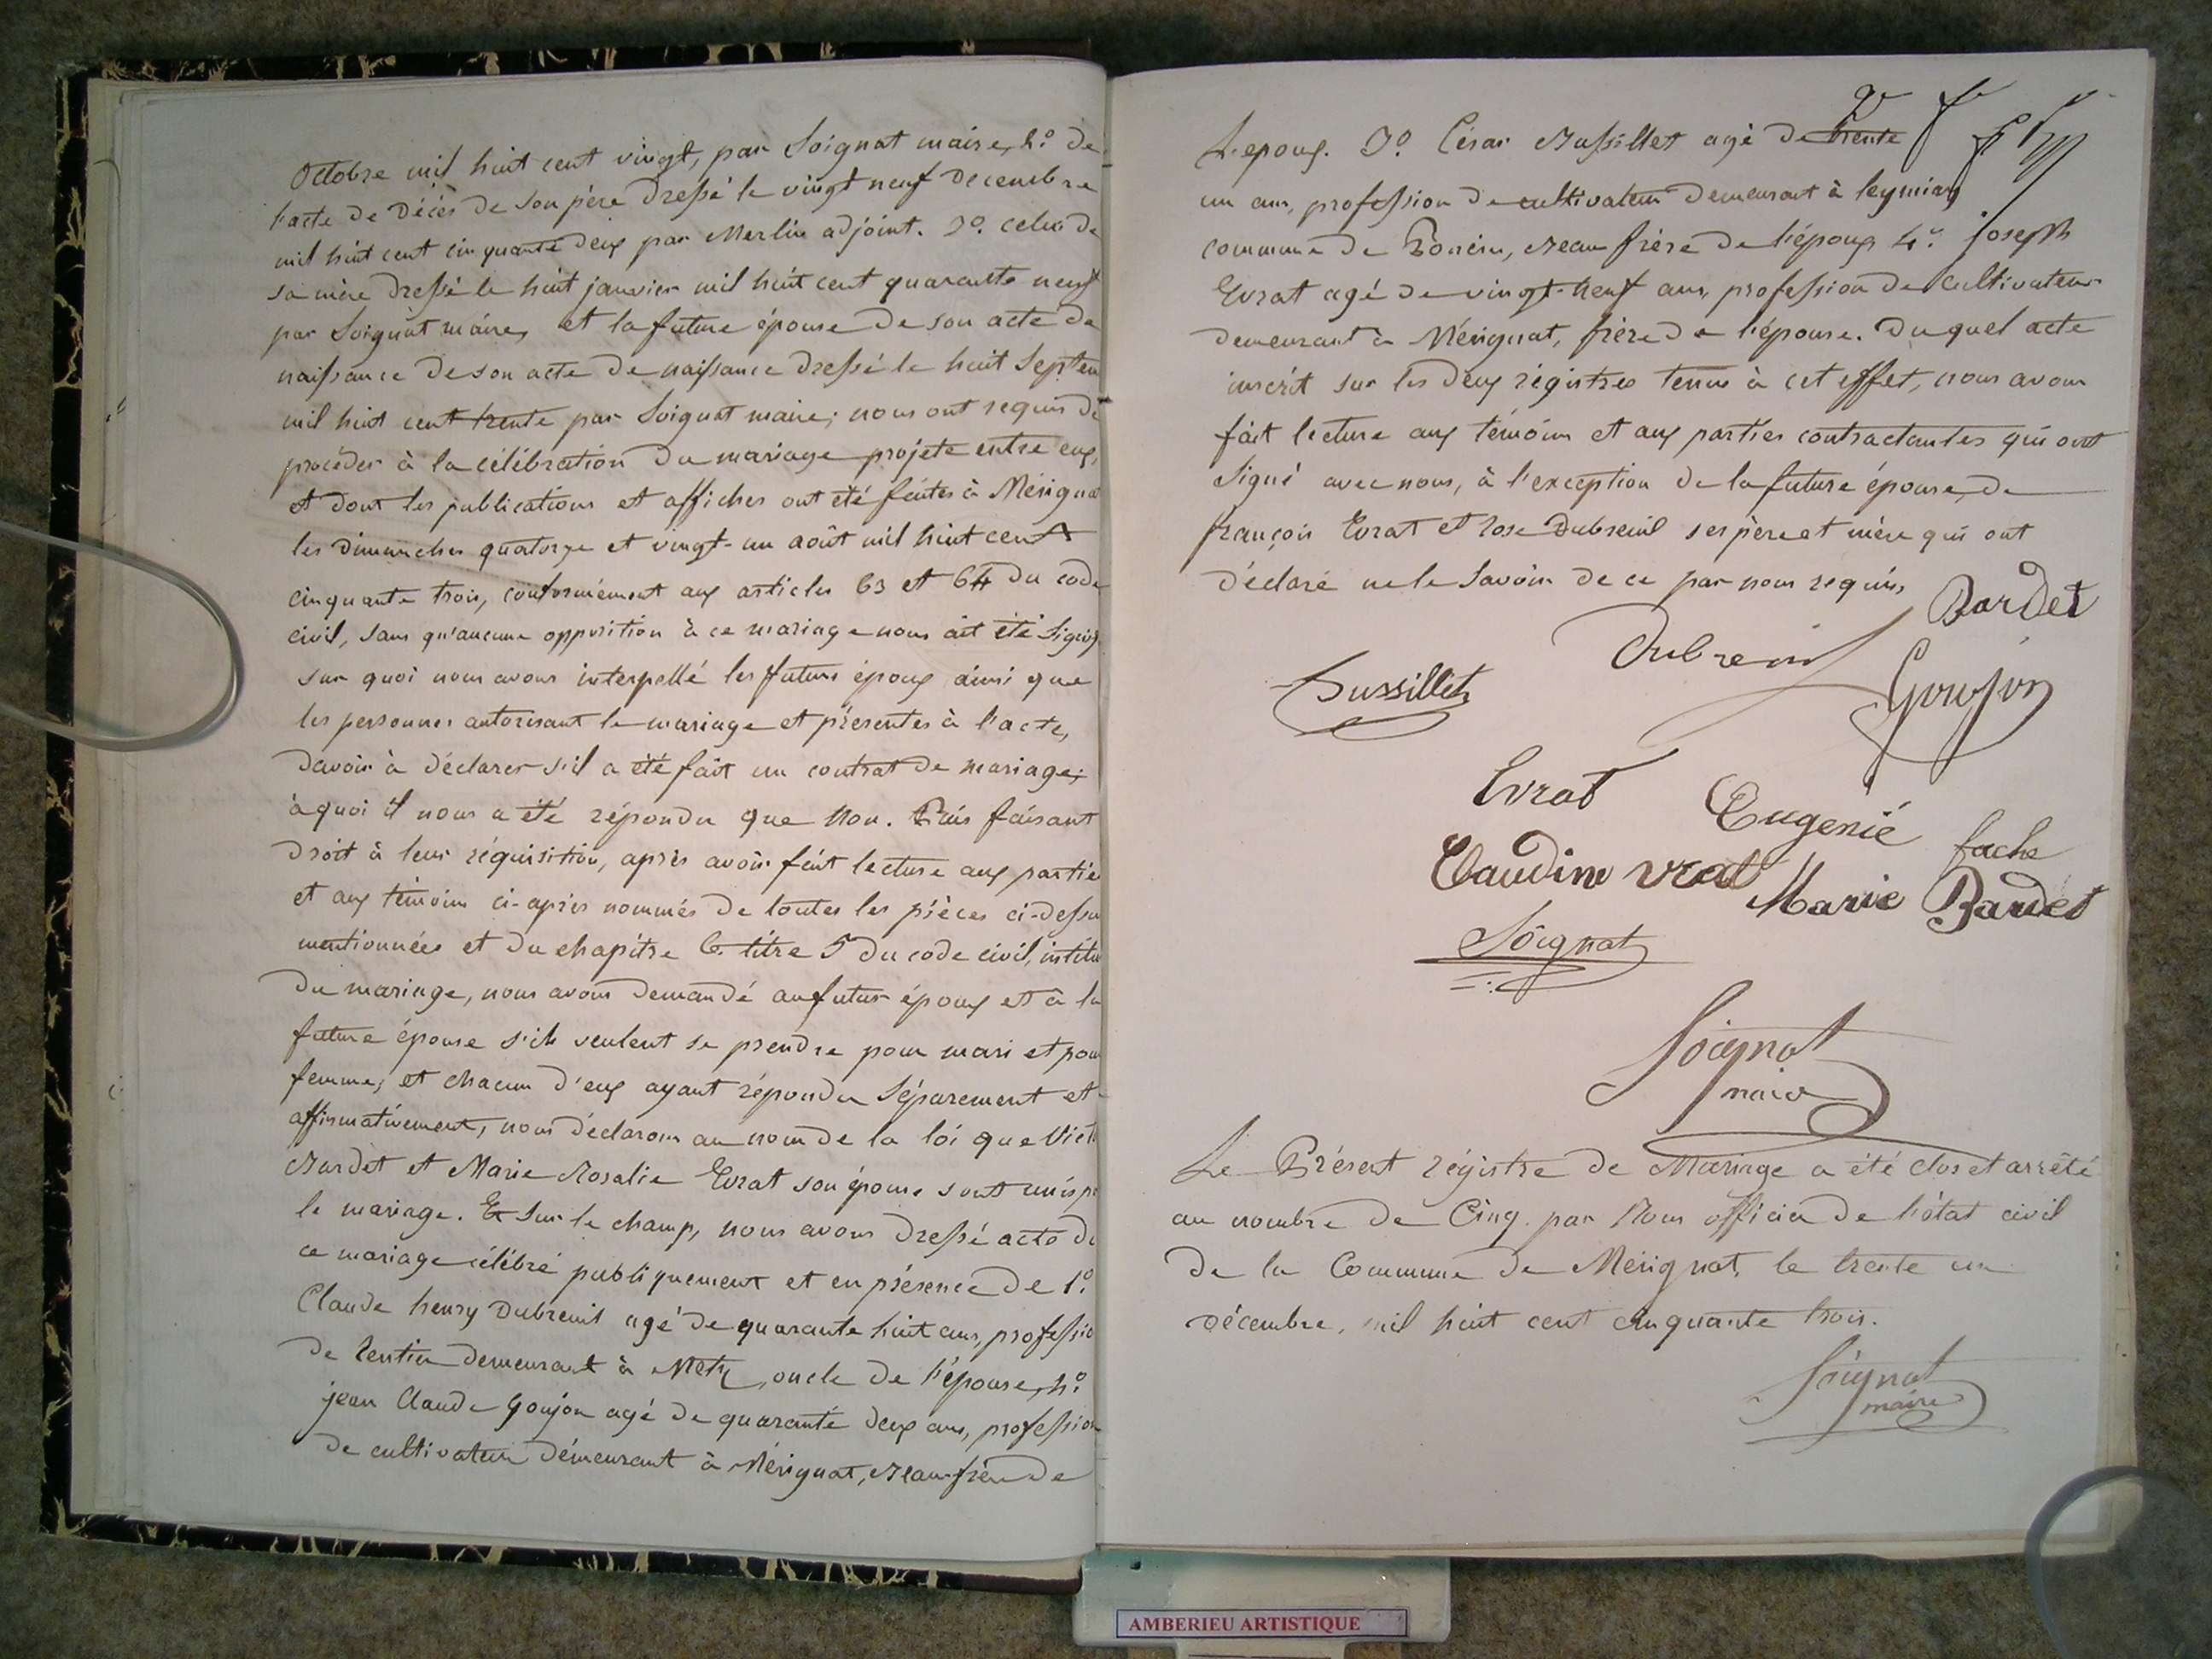 Octobre mil huit cent vingt, par Soignat maire, 2.º de
l'acte de décès de son père dressé le vingt neuf decembre
mil huit cent cinquante deux par Merlin adjoint. 3.º celui de
sa mère dressé le huit janvier mil huit cent quarante neuf
par Soignat maire, et la future épouse de son acte de
naissance de son acte de naissance dressé le huit Septem
mil huit cent trente par Soignat maire; nous ont requis de
procéder à la célébration du mariage projeté entre eux,
et dont les publications et affiches ont été faites à Mérignat
les dimanches quatorze et vingt-un août mil huit cent
cinquante trois, conformément aux articles 63 et 64 du code
civil, sans qu'aucune opposition à ce mariage nous ait été Signif
sur quoi nous avons interpellé les futurs époux ainsi que
les personnes autorisant le mariage et présentes à l'acte,
davoir à déclarer s'il a été fait un contrat de mariage;
à quoi il nous a été répondu que Non. Puis faisant
droit à leur réquisition, après avoir fait lecture aux partie
et aux témoins ci-après nommés de toutes les pièces ci-dessu
mentionnées et du chapitre 6 titre 5 du code civil, intitu
du mariage, nous avons demandé au futur époux et à la
future épouse s'ils veulent se prendre pour mari et pour
femme, et chacun d'eux ayant répondu Séparement et
affirmativement, nous déclarons au nom de la loi que Vict
Bardet et Marie Rosalie Evrat son épouse sont unis p
le mariage. Et Sur le champ, nous avons dressé acte de
ce mariage célébré publiquement et en présence de 1.º
Claude henry Dubreuil agé de quarante huit ans, professio
de Rentier demeurant à Metz, oncle de l'épouse, 2.º
jean Claude Goujon agé de quarante deux ans, profession
de cultivateur démeurant à Mérignat, Beau-frère de
L'epoux. 3.º César Bussillet agé de trente
un ans, profession de cultivateur demeurant à leymiat
commune de Poncin, Beau frère de l'époux 4.º joseph
Evrat agé de vingt-neuf ans, profession de Cultivateur
demeurant à Mérignat, frère de l'épouse. Du quel acte
inscrit sur les deux régistres tenus à cet effet, nous avons
fait lecture aux témoins et aux parties contractantes qui ont
Signé avec nous, à l'exception de la future épouse, de
françois Evrat et rose Dubreuil ses père et mère qui ont
déclaré ne le Savoir de ce par nous requis,
Bardet
Dubreuil
Bussillet
Goujon
Evrat
Eugenie fache
Claudine vrat
Marie Bardet
Soignat
Soignat
maire
Le Présent régistre de Mariage a été clos et arrêté
au nombre de Cinq. par Nous officier de l'état civil
De la Commune de Mérignat, le trente un
décembre, mil huit cent cinquante trois.
Soignat
maire
AMBERIEU ARTISTIQUE